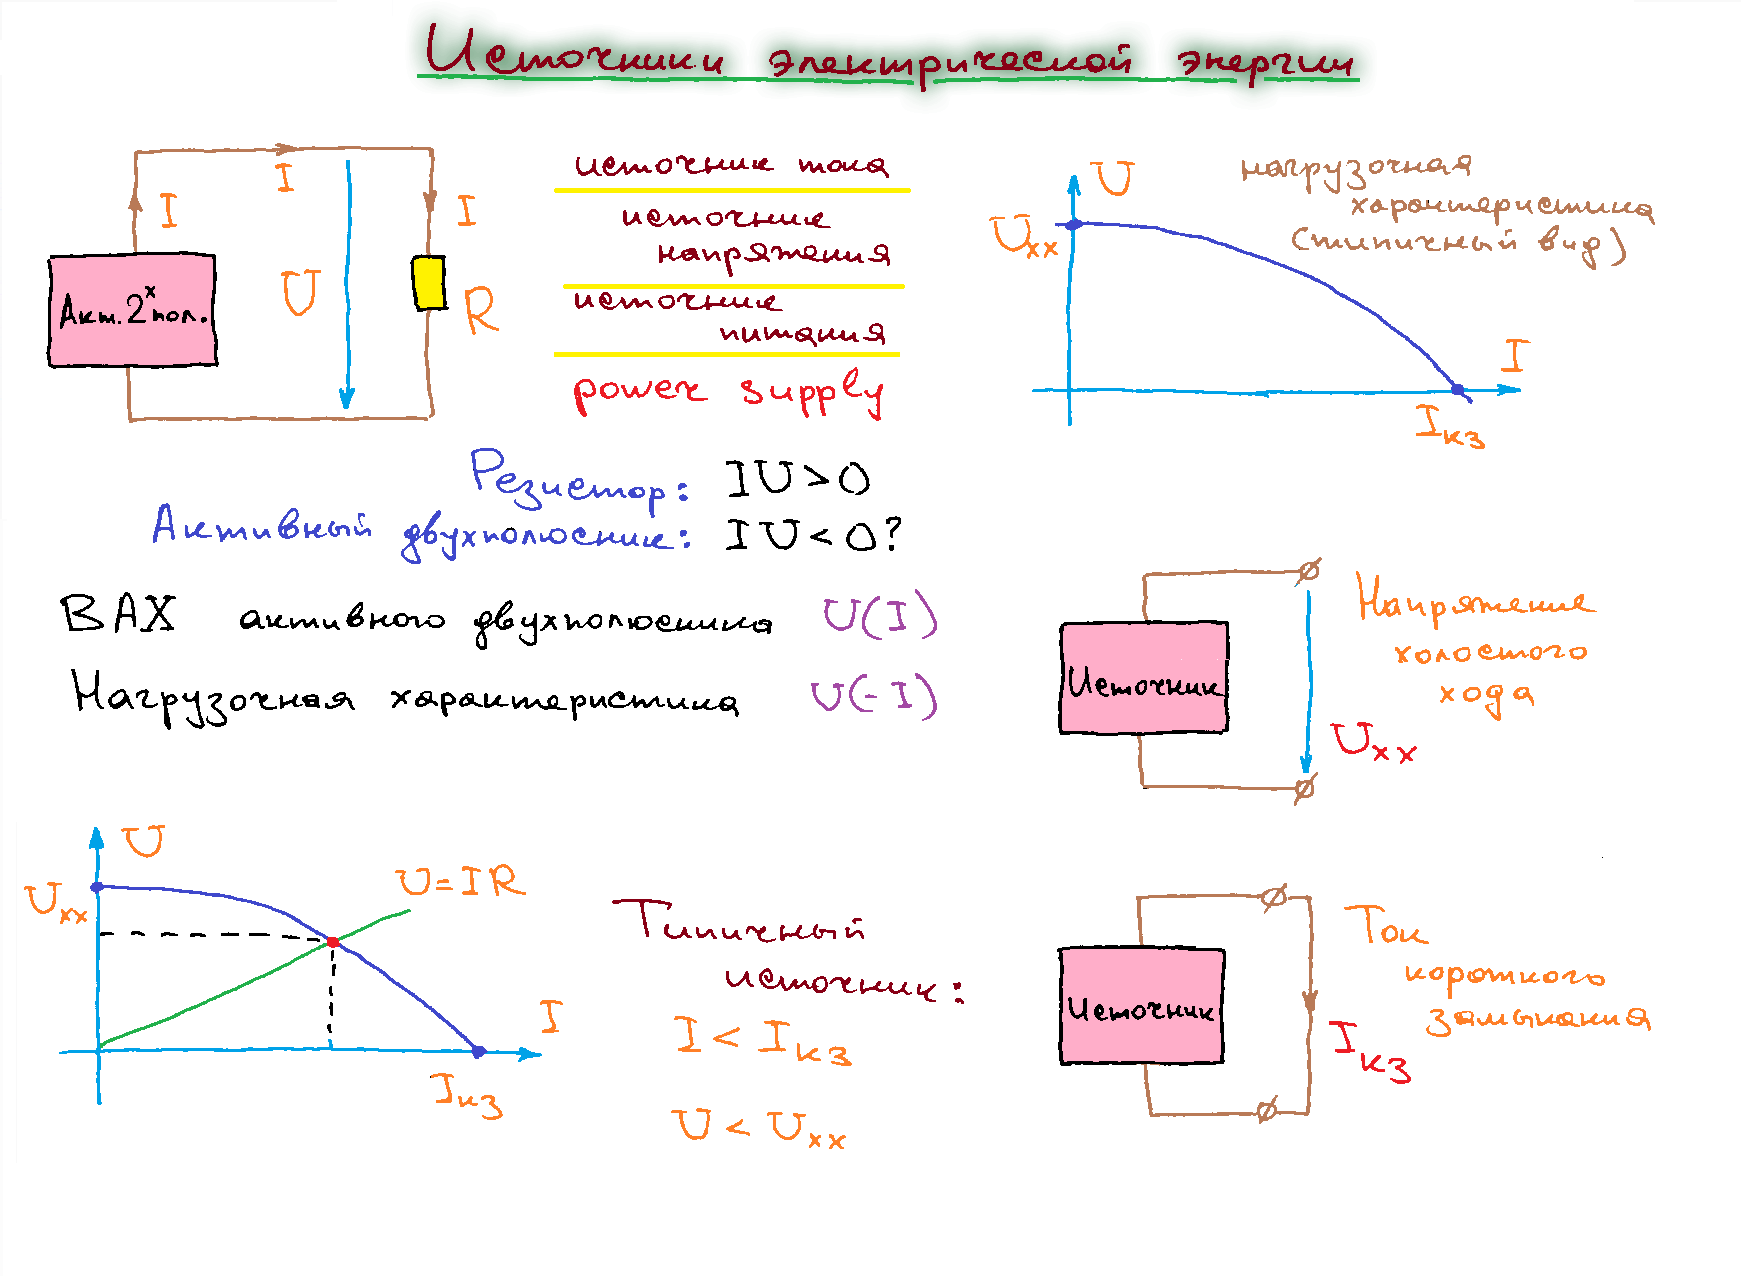 Источники электрической энергии
I
I
I
U
R
Акт. 2ˣ пол.
источник тока
источник
напряжения
источник
питания
power supply
U
Uхх
I
Iкз
нагрузочная
характеристика
(типичный вид)
Резистор: IU>0
Активный двухполюсник: IU<0?
ВАХ активного двухполюсника U(I)
Нагрузочная характеристика U(-I)
Источник
Напряжение
холостого
хода
Uхх
U
Uхх
U=IR
I
Iкз
Типичный
источник:
I < Iкз
U < Uхх
Источник
Ток
короткого
замыкания
Iкз